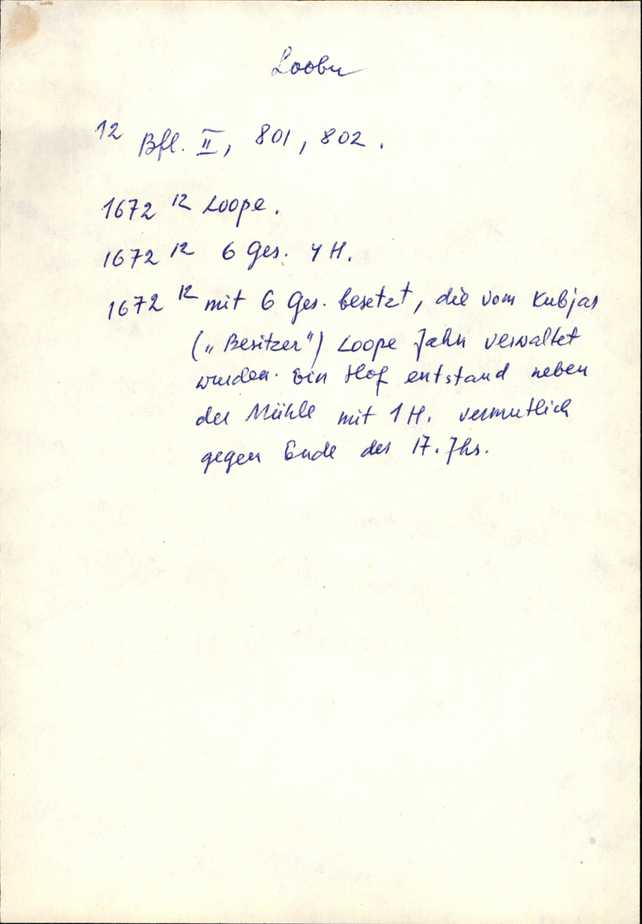 Loobu
12 Bfl. II, 801, 802.
1672 12 Loope.
1672 12 6 Ges. 4 H.
1672 12 mit 6 Ges. besetzt, die vom Kubjas
(„Besitzer") Loope Jahn verwaltet
wurden. Ein Hof entstand neben
der Mühle mit 1 H. vermutlich
gegen Ende des 17. Jhs.